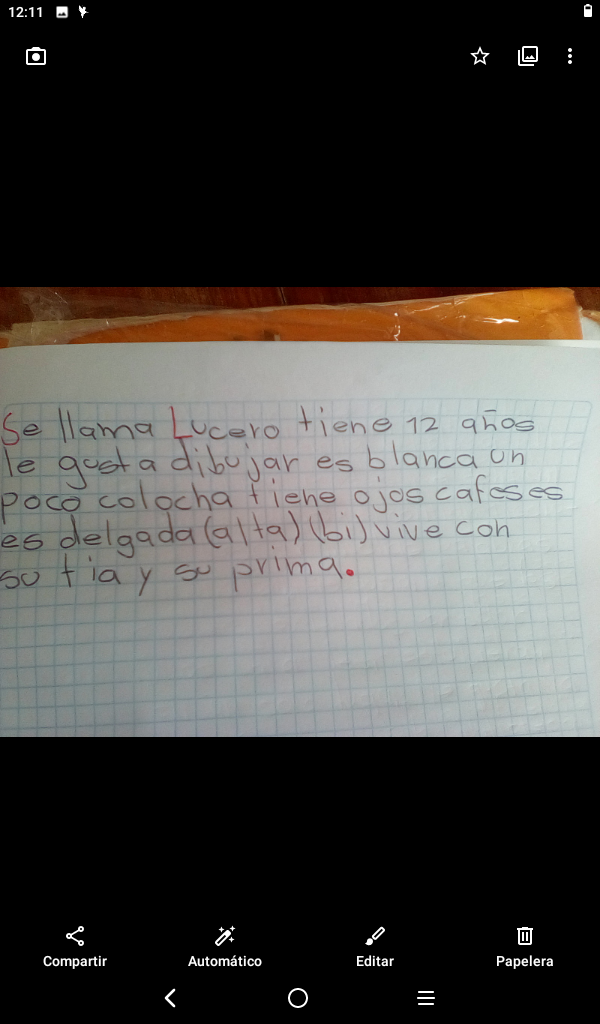 12:11
Se llama Lucero tiene 12 años
le gusta dibujar es blanca un
poco colocha tiene ojos cafeses
es delgada (alta) (bi) vive con
su tia y su prima.
Compartir Automático Editar Papelera